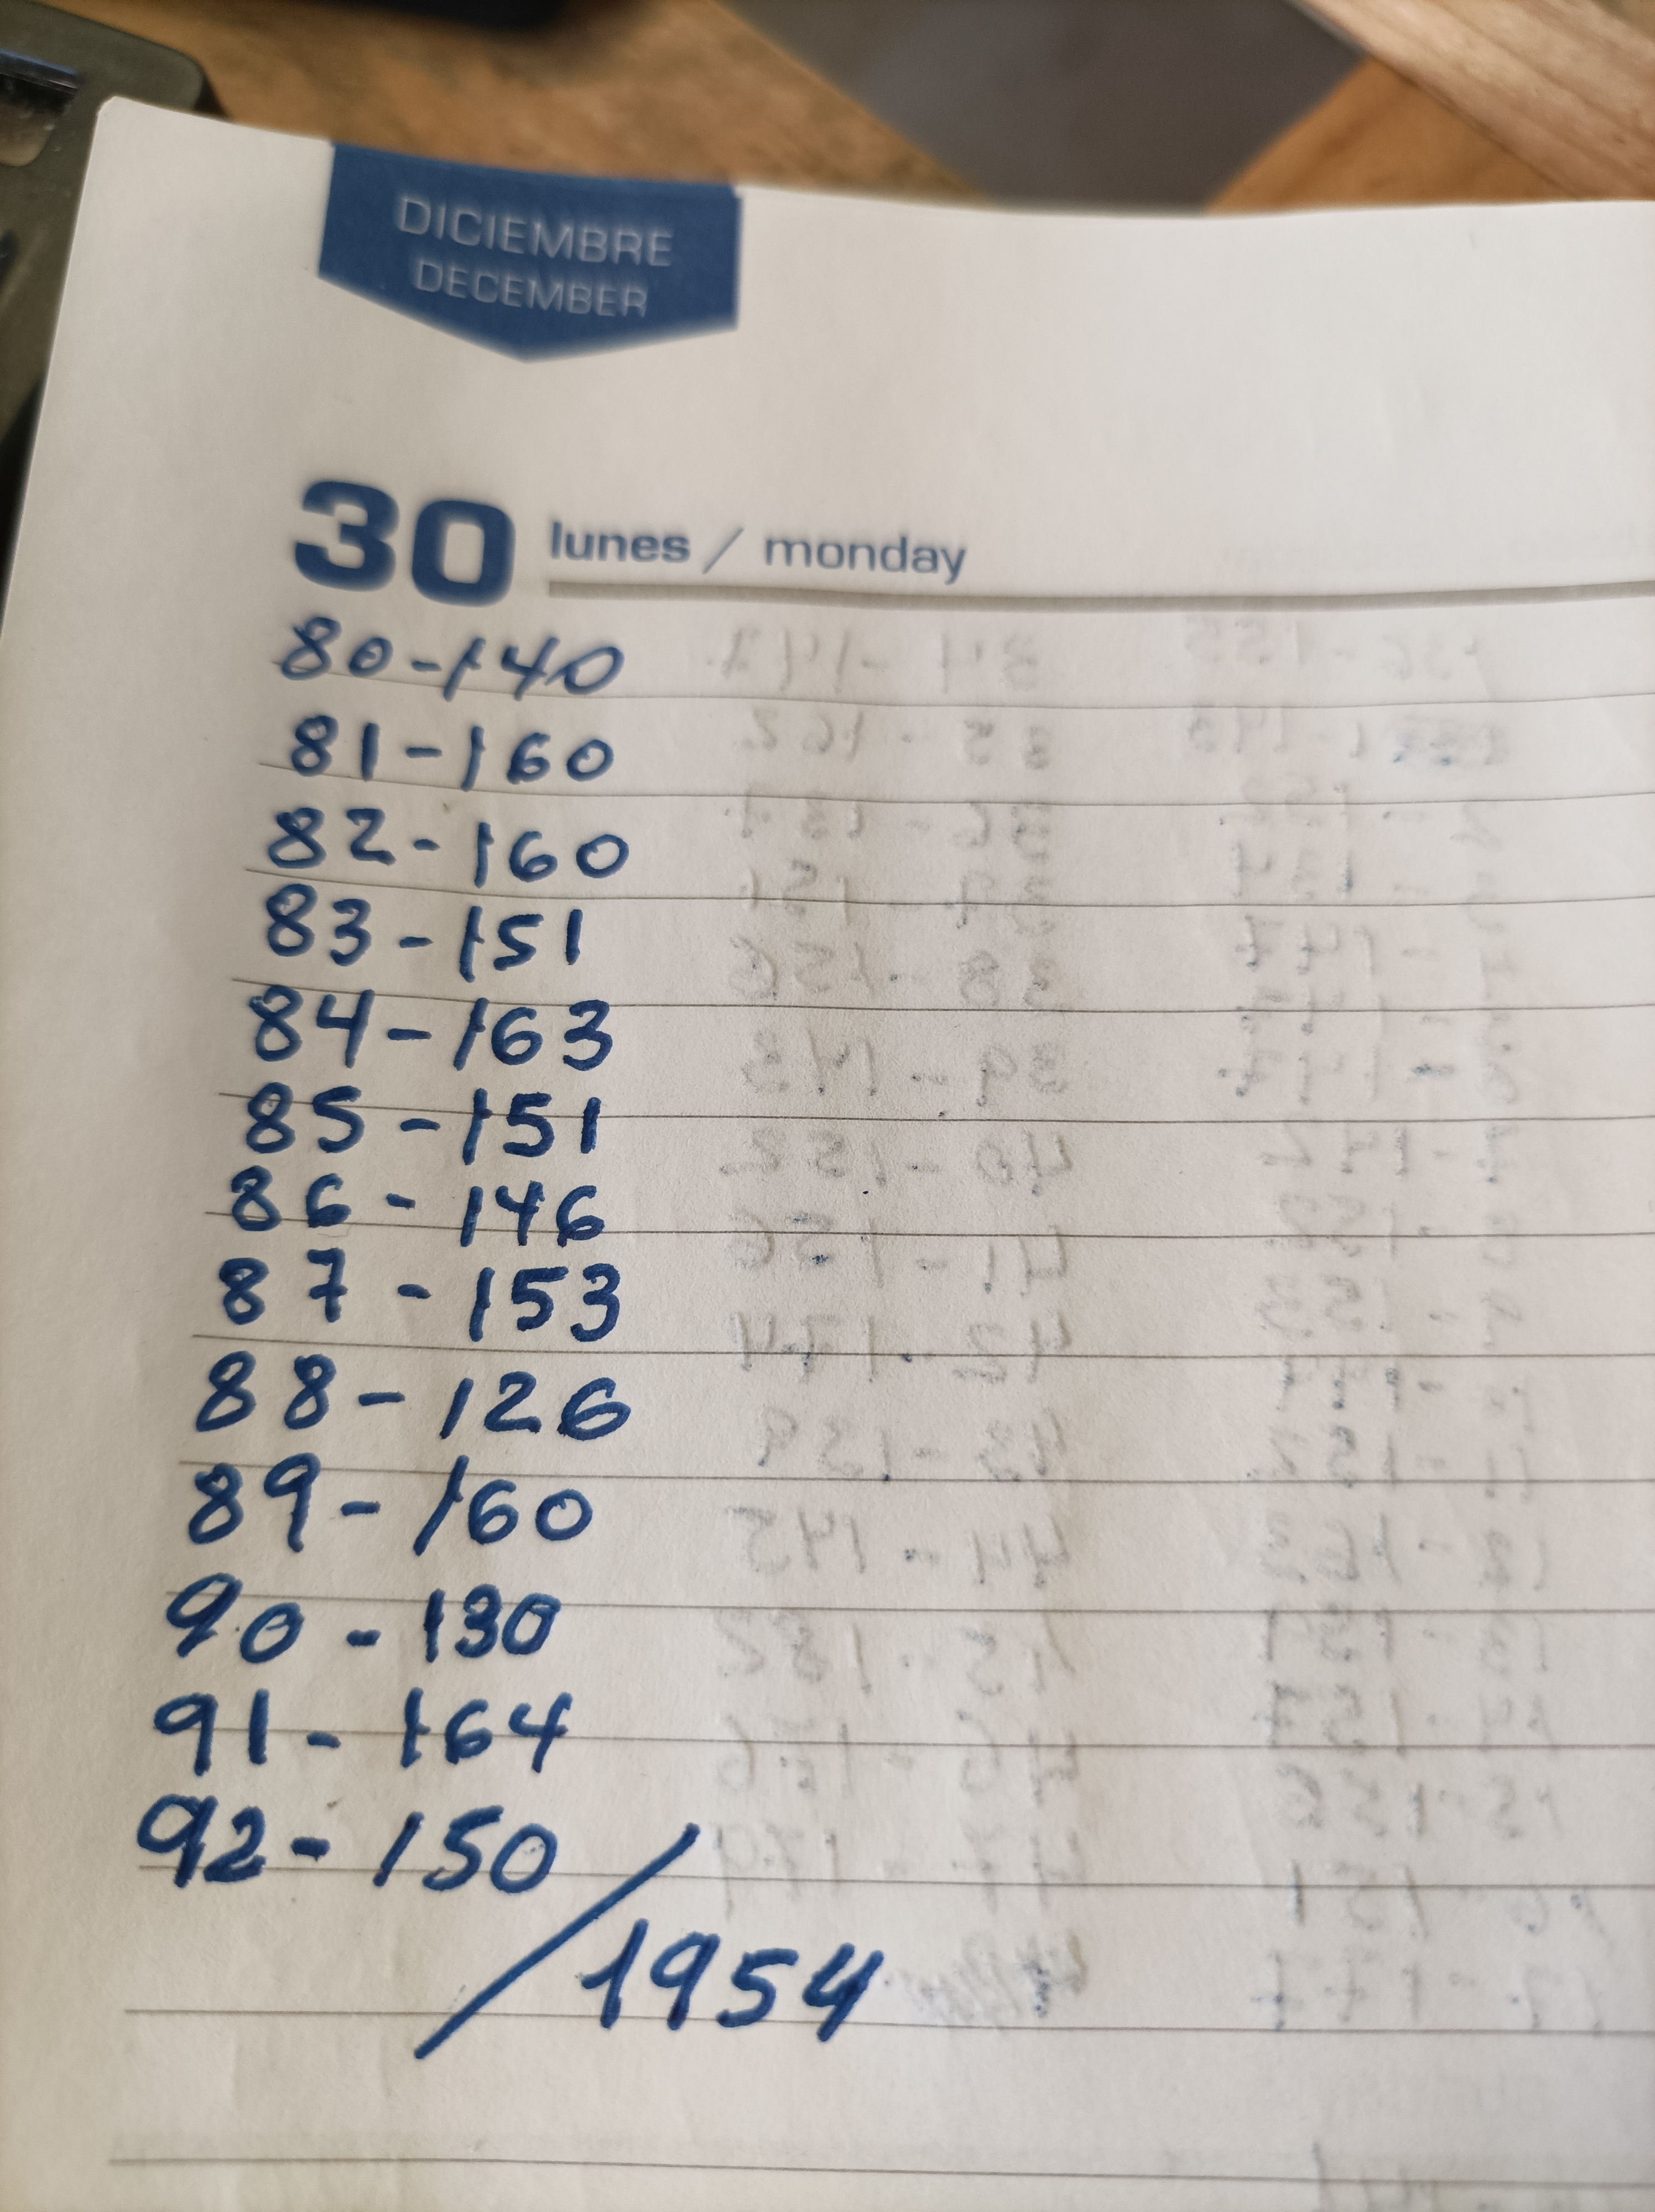 DICIEMBRE
DECEMBER
30 lunes / monday
80-140
81-160
82-160
83-151
84-163
85-151
86-146
87-153
88-126
89-160
90-130
91-164
92-150
/1954